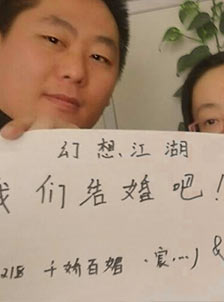 幻想江湖
我们结婚吧！
21B 千娇百媚 &